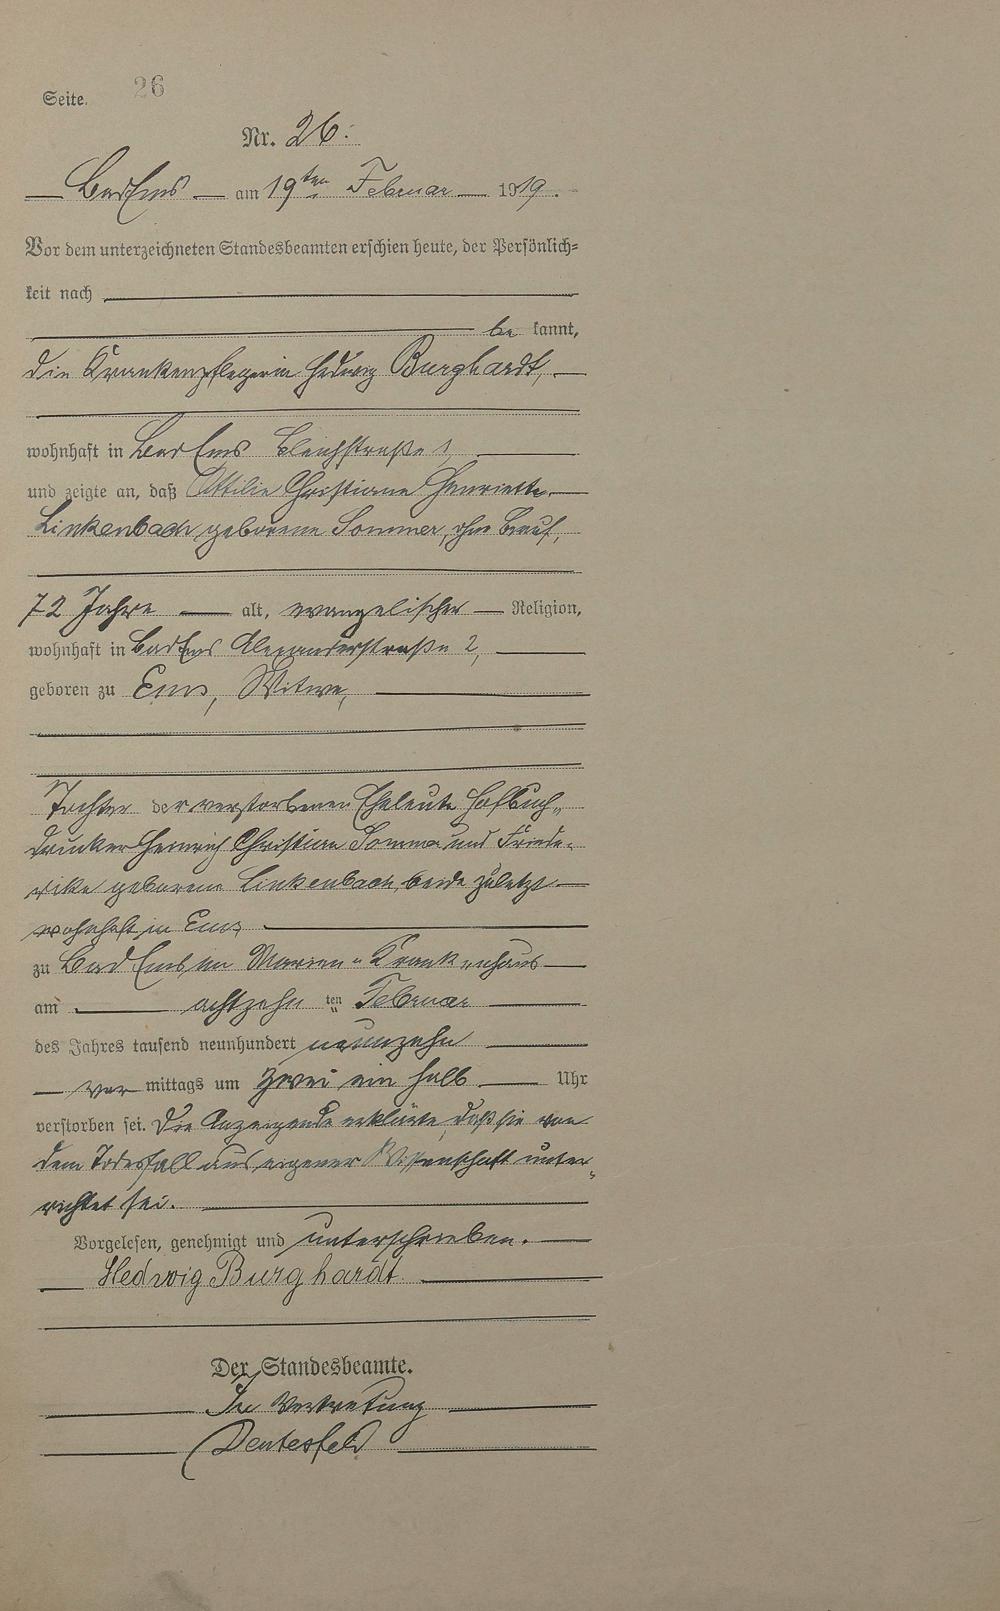 Seite. 26
Nr. 26.
Bad Ems am 19ten Februar 1919.
Vor dem unterzeichneten Standesbeamten erschien heute, der Persönlich=
keit nach
be kannt,
die Krankenpflegerin Hedwig Burghardt,
wohnhaft in Bad Ems Bleichstraße 1,
und zeigte an, daß Ottilie Christiane Henriette
Linkenbach geborene Sommer, ohne Beruf,
72 Jahre alt, evangelischer Religion,
wohnhaft in Bad Ems Alexanderstraße 2,
geboren zu Ems, Witwe,
Tochter der verstorbenen Eheleute Hofbuch„
drucker Heinrich Christian Sommer und Friede„
rike geborene Linkenbach, beide zuletzt
wohnhaft in Ems
zu Bad Ems im Marien„Krankenhaus
am achtzehn ten Februar
des Jahres tausend neunhundert neunzehn
vor mittags um zwei ein halb Uhr
verstorben sei. Die Anzeigende erklärte, daß sie von
dem Todesfall aus eigener Wissenschaft unter„
richtet sei.
Vorgelesen, genehmigt und unterschrieben.
Hedwig Burghardt
Der Standesbeamte.
In Vertretung